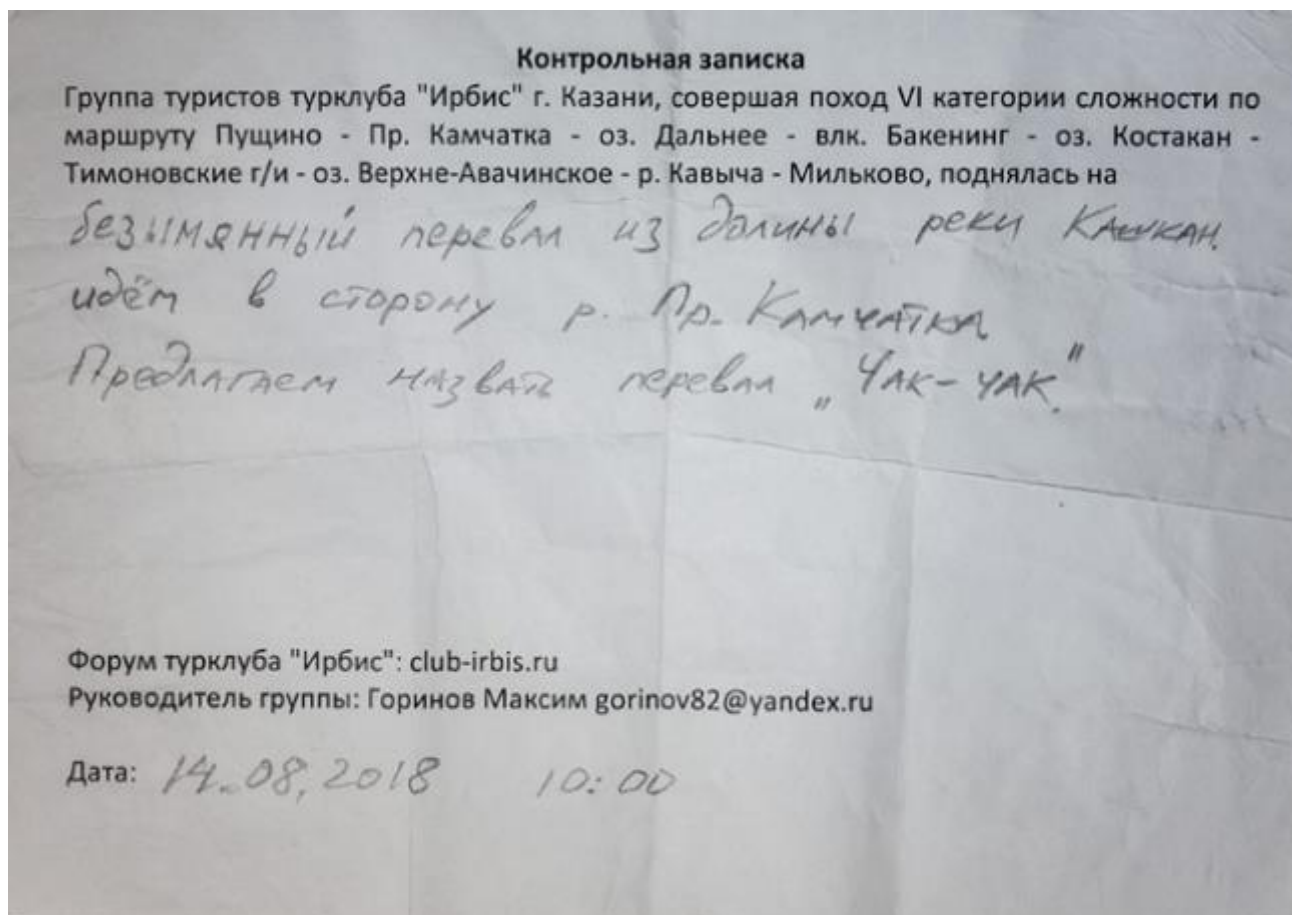 Контрольная записка
Группа туристов турклуба "Ирбис" г. Казани, совершая поход VI категории сложности по
маршруту Пущино - Пр. Камчатка - оз. Дальнее - влк. Бакенинг - оз. Костакан -
Тимоновские г/и - оз. Верхне-Авачинское - р. Кавыча - Мильково, поднялась на
безымянный перевал из долины реки Кашкан.
идём в сторону р. Пр. Камчатка
Предлагаем назвать перевал „Чак-чак."
Форум турклуба "Ирбис": club-irbis.ru
Руководитель группы: Горинов Максим gorinov82@yandex.ru
Дата: 14.08.2018 10:00